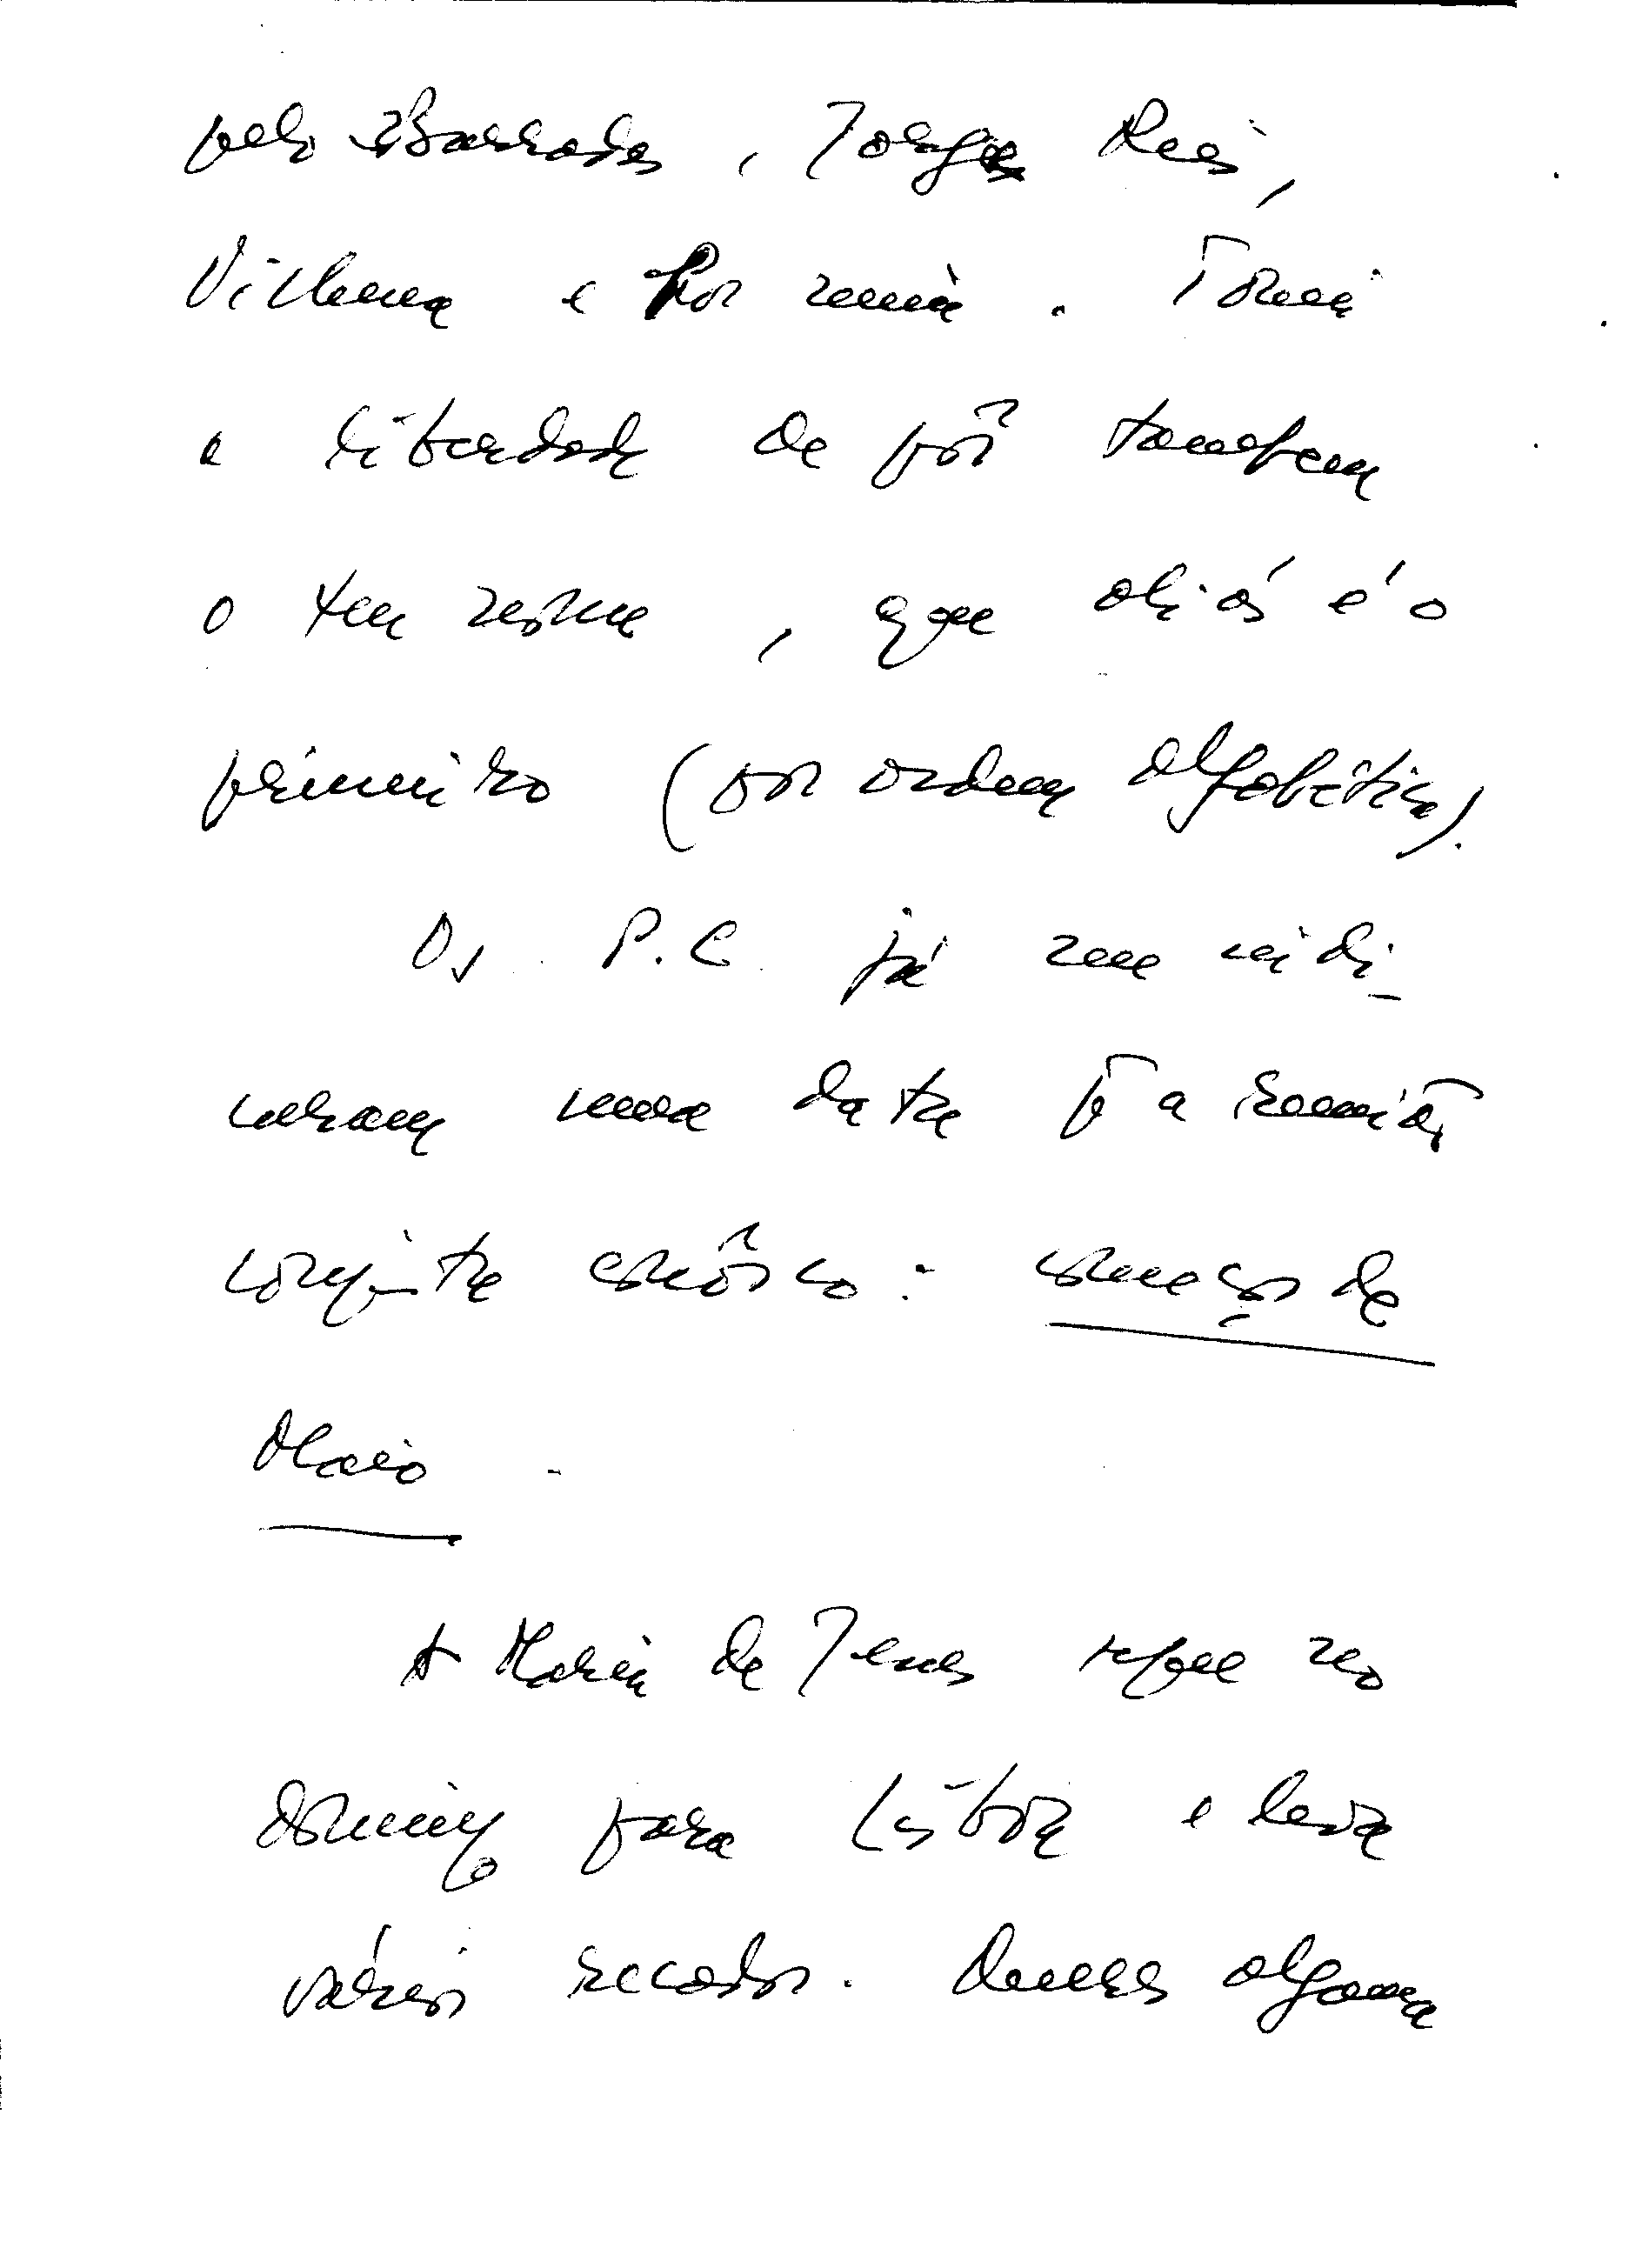 pelo Barradas, Jorge Reis,
Vilhena e por mim. Tomei
a liberdade de pôr tambem
o teu nome, que aliás é o
primeiro (por ordem alfabética).
Os P.C. já me indi-
caram uma data p̄ a reunião
conjunta conôsco: começos de
Maio.
A Maria de Jesus segue no
domingo para Lisboa e leva
vários recados. Daremos alguma